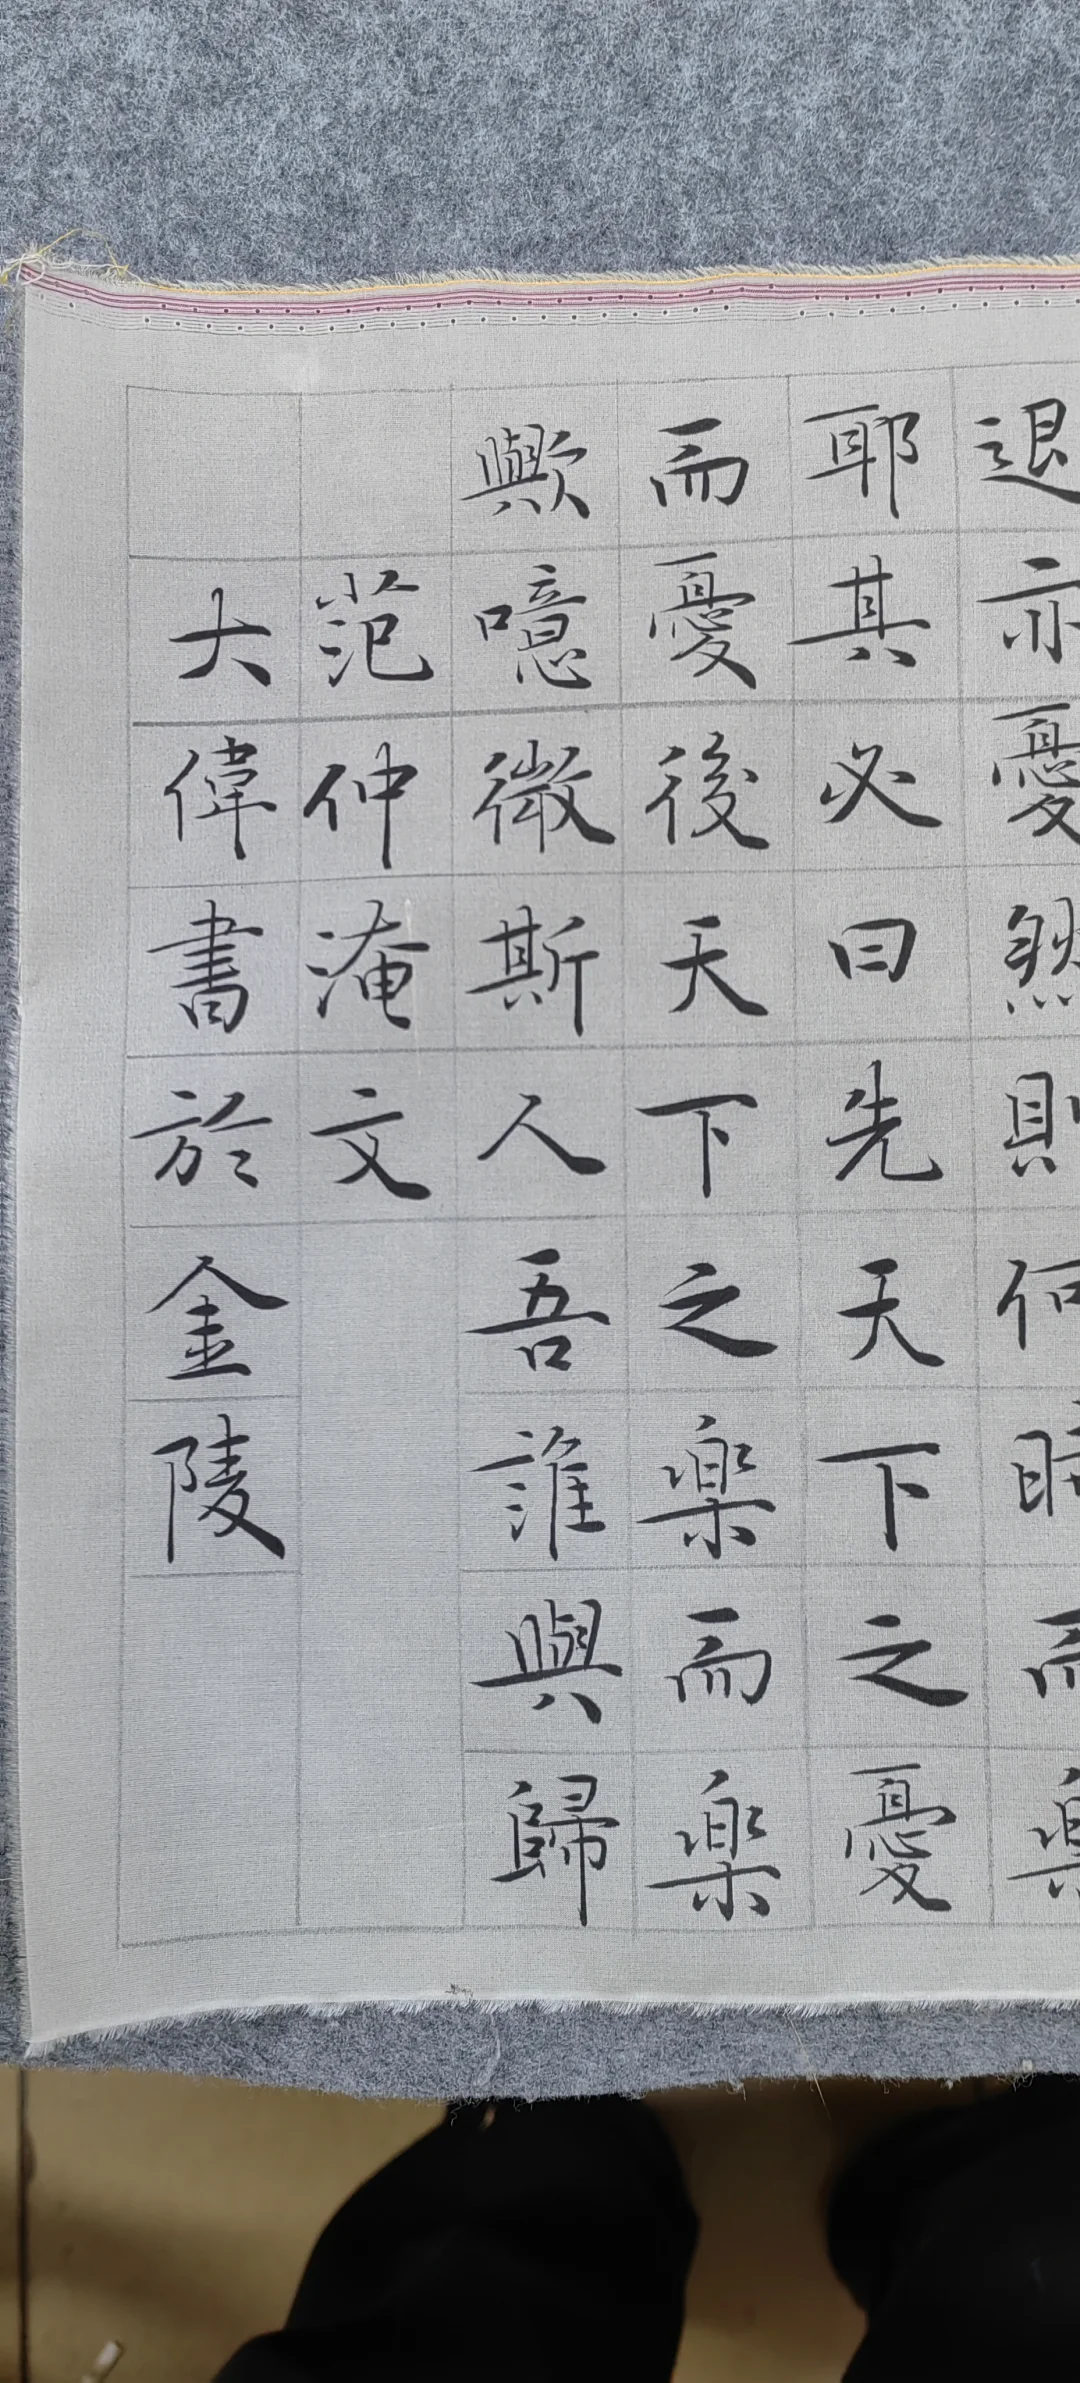 退亦憂然則何時而樂
耶其必曰先天下之憂
而憂後天下之樂而樂
歟噫微斯人吾誰與歸
范仲淹文
大偉書於金陵